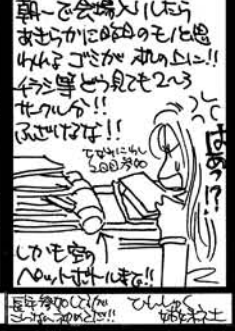 朝一で会場入りしたら
あきらかに昨日のモノと思
われるゴミが机の上に!!
チラシ等どう見ても2〜3
サークル分!!
ふざけるな!!
って
はめっ!?
2日目参加
しかも空の
ペットボトルまで!!
長年参加してるが
こんなの初めてだ!!
ひんしゅく